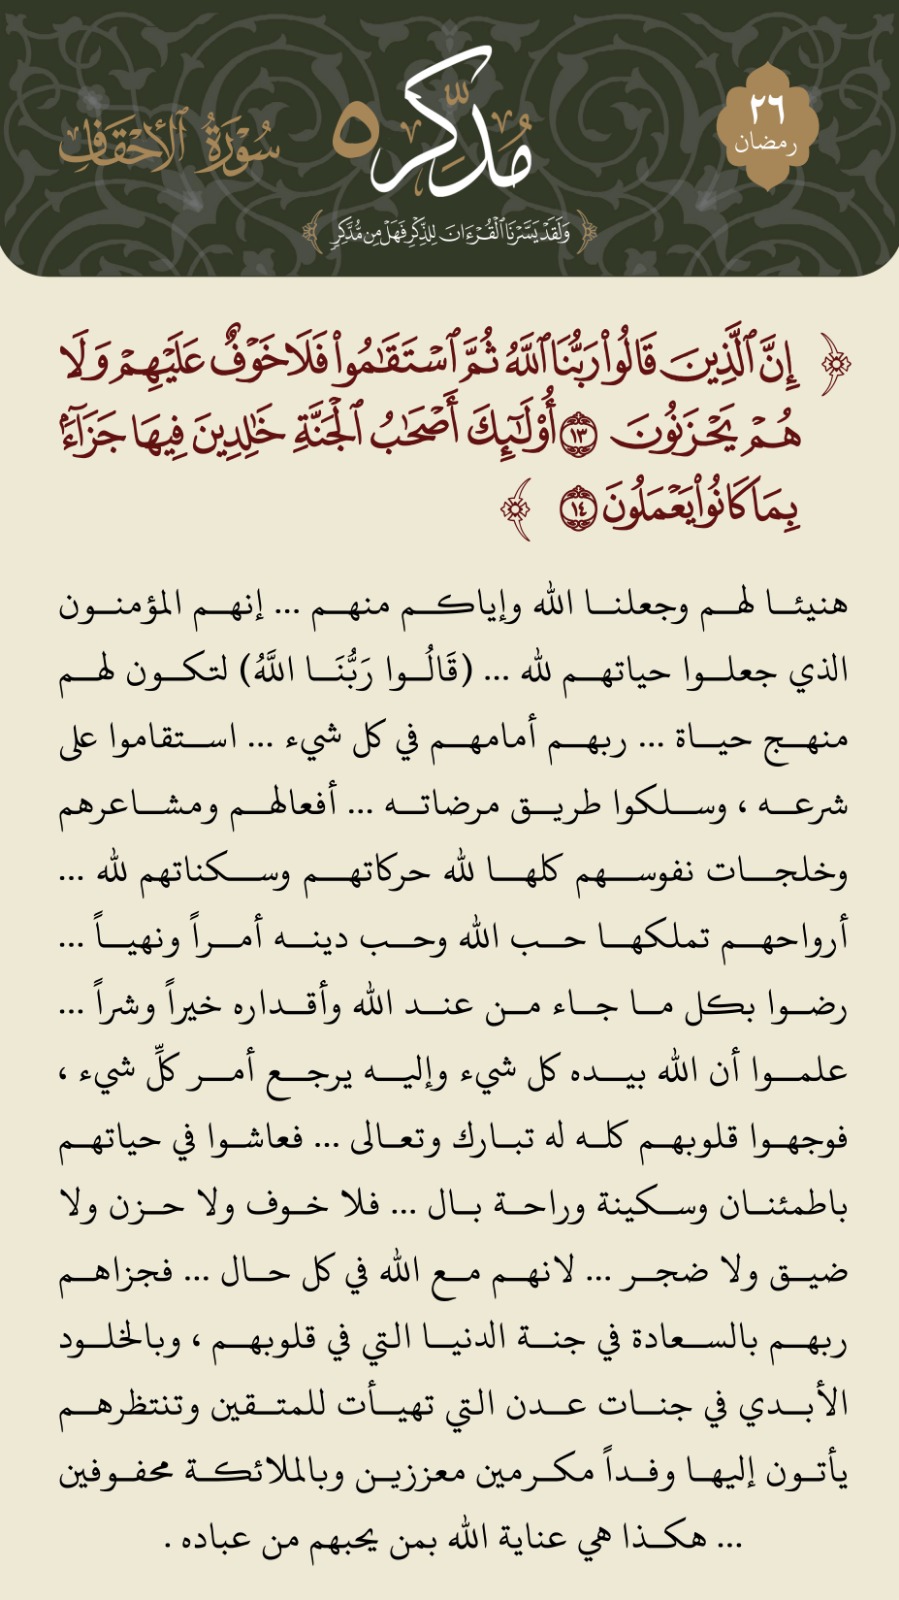 ٢٦
رمضان
مُدَّكِر ٥
سُورَةُ الأَحْقَافِ
﴿ وَلَقَدْ يَسَّرْنَا ٱلْقُرْءَانَ لِلذِّكْرِ فَهَلْ مِن مُّدَّكِرٍ ﴾
﴿ إِنَّ ٱلَّذِينَ قَالُوا۟ رَبُّنَا ٱللَّهُ ثُمَّ ٱسْتَقَـٰمُوا۟ فَلَا خَوْفٌ عَلَيْهِمْ وَلَا
هُمْ يَحْزَنُونَ ١٣ أُو۟لَـٰٓئِكَ أَصْحَـٰبُ ٱلْجَنَّةِ خَـٰلِدِينَ فِيهَا جَزَآءًۢ
بِمَا كَانُوا۟ يَعْمَلُونَ ١٤ ﴾
هنيئــا لهــم وجعلنــا الله وإياكــم منهــم ... إنهــم المؤمنــون
الذي جعلــوا حياتهــم لله ... (قَالُــوا رَبُّنَــا اللَّهُ) لتكــون لهــم
منهــج حيــاة ... ربهــم أمامهــم في كل شيء ... اســتقاموا على
شرعــه ، وســلكوا طريــق مرضاتــه ... أفعالهــم ومشــاعرهم
وخلجــات نفوســهم كلهــا لله حركاتهــم وســكناتهم لله ...
أرواحهــم تملكهــا حــب الله وحــب دينــه أمــراً ونهيــاً ...
رضــوا بكل مــا جــاء مــن عنــد الله وأقــداره خيراً وشراً ...
علمــوا أن الله بيــده كل شيء وإليــه يرجــع أمــر كلِّ شيء ،
فوجهــوا قلوبهــم كلــه له تبــارك وتعــالى ... فعاشــوا في حياتهــم
باطمئنــان وســكينة وراحــة بــال ... فلا خــوف ولا حــزن ولا
ضيــق ولا ضجــر ... لانهــم مــع الله في كل حــال ... فجزاهــم
ربهــم بالســعادة في جنــة الدنيــا التي في قلوبهــم ، وبالخلــود
الأبــدي في جنــات عــدن التي تهيــأت للمتــقين وتنتظرهــم
يأتــون إليهــا وفــداً مكــرمين معززيــن وبالملائكــة محفــوفين
... هكــذا هي عناية الله بمن يحبهم من عباده .